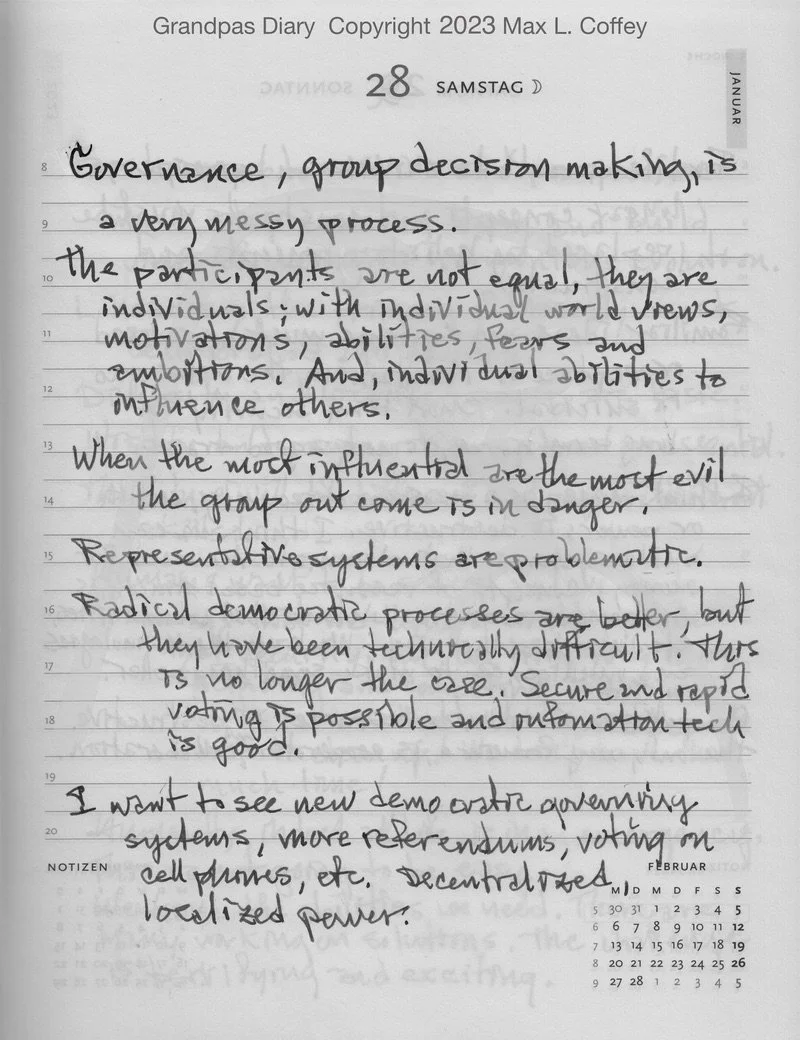 Grandpas Diary Copyright 2023 Max L. Coffey
28 SAMSTAG
JANUAR
8 Governance, group decision making, is
9 a very messy process.
10 The participants are not equal, they are
individuals; with individual world views,
11 motivations, abilities, fears and
ambitions. And, individual abilities to
12 influence others.
13 When the most influential are the most evil
14 the group out come is in danger.
15 Representative systems are problematic.
16 Radical democratic processes are better, but
they have been technically difficult. This
17 is no longer the case. Secure and rapid
18 voting is possible and information tech
is good.
19 I want to see new democratic governing
20 systems, more referendums, voting on
NOTIZEN cell phones, etc. Decentralized,
localized power.
FEBRUAR
M D M D F S S
5 30 31 1 2 3 4 5
6 6 7 8 9 10 11 12
7 13 14 15 16 17 18 19
8 20 21 22 23 24 25 26
9 27 28 1 2 3 4 5